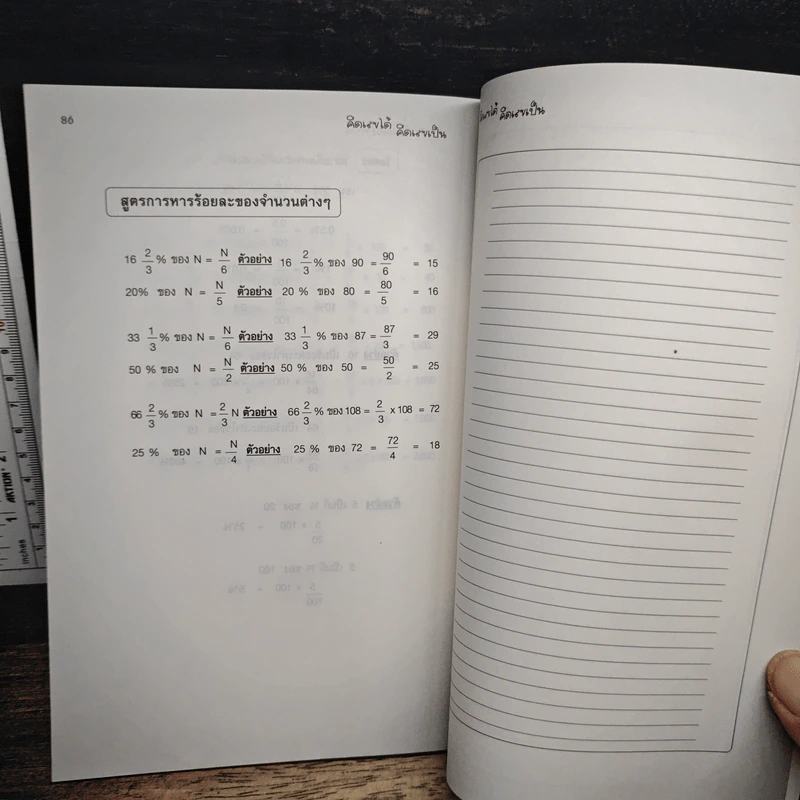 86
คิดเลขได้ คิดเลขเป็น
สูตรการหารร้อยละของจำนวนต่างๆ
16 2/3 % ของ N = N/6 ตัวอย่าง 16 2/3 % ของ 90 = 90/6 = 15
20% ของ N = N/5 ตัวอย่าง 20 % ของ 80 = 80/5 = 16
33 1/3 % ของ N = N/6 ตัวอย่าง 33 1/3 % ของ 87 = 87/3 = 29
50 % ของ N = N/2 ตัวอย่าง 50 % ของ 50 = 50/2 = 25
66 2/3 % ของ N = 2/3 N ตัวอย่าง 66 2/3 % ของ 108 = 2/3 x 108 = 72
25 % ของ N = N/4 ตัวอย่าง 25 % ของ 72 = 72/4 = 18
คิดเลขเป็น
Inches
1
2
10